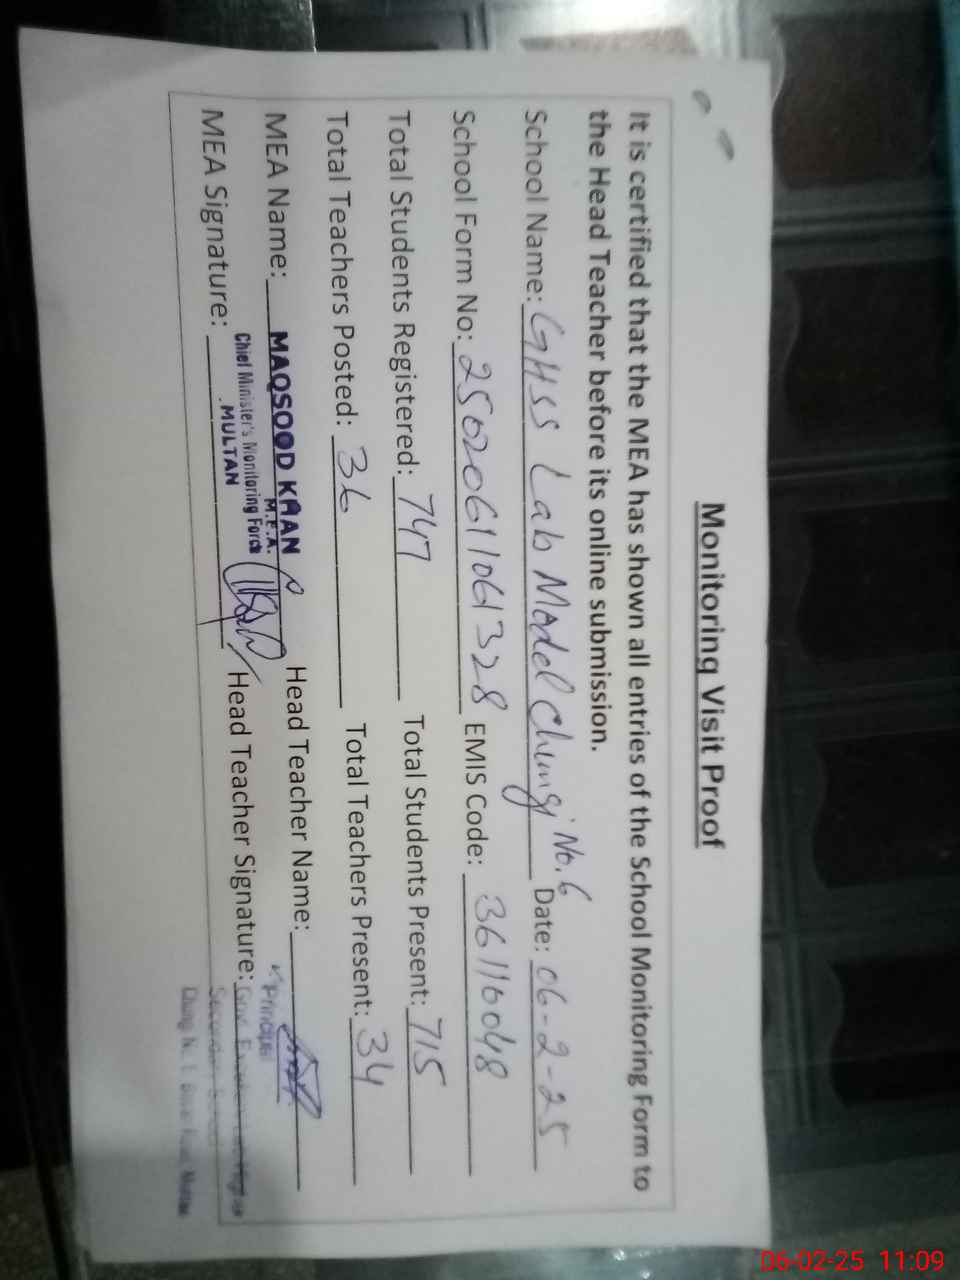 Monitoring Visit Proof
It is certified that the MEA has shown all entries of the School Monitoring Form to
the Head Teacher before its online submission.
School Name: GHSS Lab Model Chungi No.6 Date: 06-2-25
School Form No: 25020611061328 EMIS Code: 36110048
Total Students Registered: 747 Total Students Present: 715
Total Teachers Posted: 36 Total Teachers Present: 34
MEA Name: MAQSOOD KHAN Head Teacher Name:
M.E.A.
Chief Minister's Monitoring Force
MULTAN
MEA Signature: Head Teacher Signature:
Principal
Secondary School
Multan
06-02-25 11:09